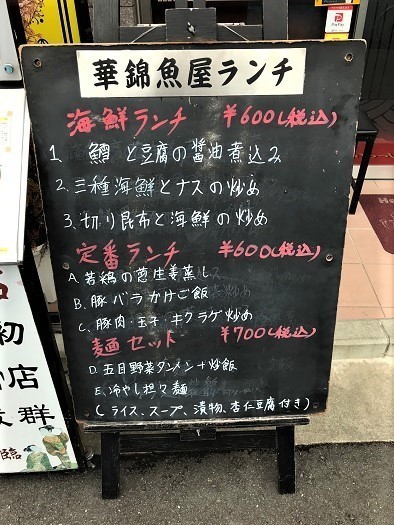 華錦魚屋ランチ
海鮮ランチ ¥600(税込)
1. 鱈と豆腐の醤油煮込み
2. 三種海鮮とナスの炒め
3. 切り昆布と海鮮の炒め
定番ランチ ¥600(税込)
A. 若鶏の葱生姜蒸し
B. 豚バラかけご飯
C. 豚肉・玉子・キクラゲ炒め
麺セット ¥700(税込)
D. 五目野菜タンメン+炒飯
E. 冷やし担々麺
(ライス、スープ、漬物、杏仁豆腐付き)
初
店
群
臨
PayPay